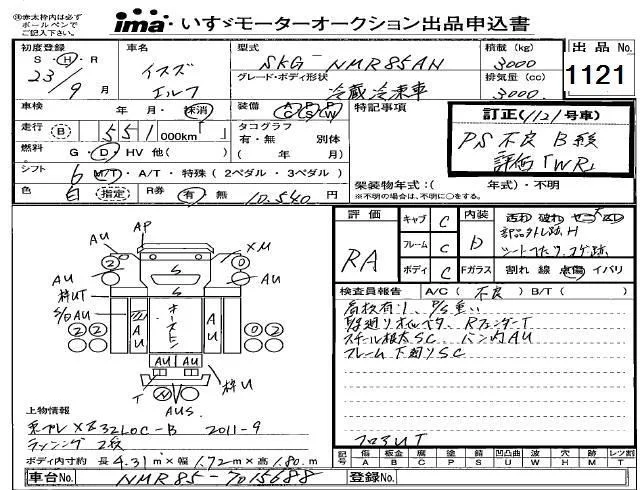 ※赤太枠内は必ず
ボールペンで
ご記入下さい。
ima・いすゞモーターオークション出品申込書
初度登録 車名 型式 積載 (kg) 出品 No.
S・H・R 23/9 月 イスズ エルフ SKG-NMR85AN 3000 1121
グレード・ボディ形状 排気量 (cc)
冷蔵冷凍車 3000
車検 年・月・抹消 装備 AC PS PW 特記事項
走行 B 551 000km 「 」 タコグラフ 有・無 別体
燃料 G・D・HV 他( ) ( 年 月)
訂正(1121号車)
PS不良 B級
評価「WR」
シフト 6 M/T・A/T・特殊 ( 2ペダル・3ペダル )
架装物年式:( 年式)・不明
※不明の場合は、不明に○をする。
色 白 (指定) R券 有・無 10,540 円
評価 RA
キャブ C
フレーム C
ボディ C
内装 D
汚れ 破れ
部品外し跡 H
シートへたり、コゲ跡
Fガラス 割れ 線 点傷 イバリ
検査員報告 A/C( 不良 ) B/T( )
高校有り、P/S重い
Rフェンダー T
スチール根太SC バン内AU
フレーム 下廻りSC
フロアUT
AP
AU
XU
AU
AU
枠UT
S
S
AU
AU
AU
AU
枠U
T
AUS
上物情報
東プレ XV32LOC-B 2011-9
ラッシング 2段
ボディ内寸約 長 4.31m×幅 1.72m×高 1.80m
記号 傷 A 板金 B 腐 C 塗装 P 錆 S 凹凸凸曲 U 波 W 穴 H 外 M レツ割 T
車台No. NMR85-7015688 登録No.